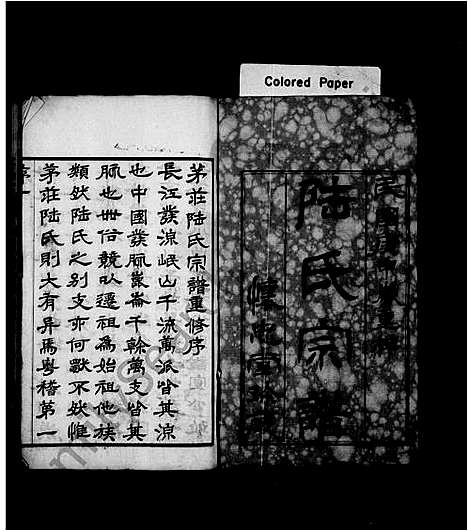 Colored Paper
陸氏宗譜
懷忠堂
茅莊陸氏宗譜重修序
長江發源岷山千流萬派皆其源
也中國發脈崑崙千幹萬支皆其
脈也世俗競以遷祖為始祖他族
類然陸氏之別支亦何獸不然惟
茅莊陸氏則大有異焉粵稽第一